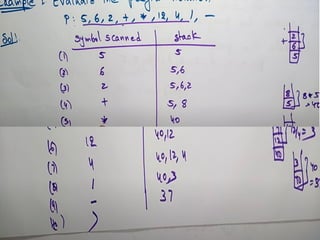 Example : Evaluate the
P: 5, 6, 2, +, *, 12, 4, 1, -
Sol:
Symbol scanned stack
(1) 5 5
(2) 6 5,6
(3) 2 5,6,2
(4) + 5, 8
(5) * 40
(6) 12 40,12
(7) 4 40,12,4
(8) / 40,3
(9) - 37
(10) )
+ 2
6
5
8 8*5
5 =40
12/4 = 3
3 40